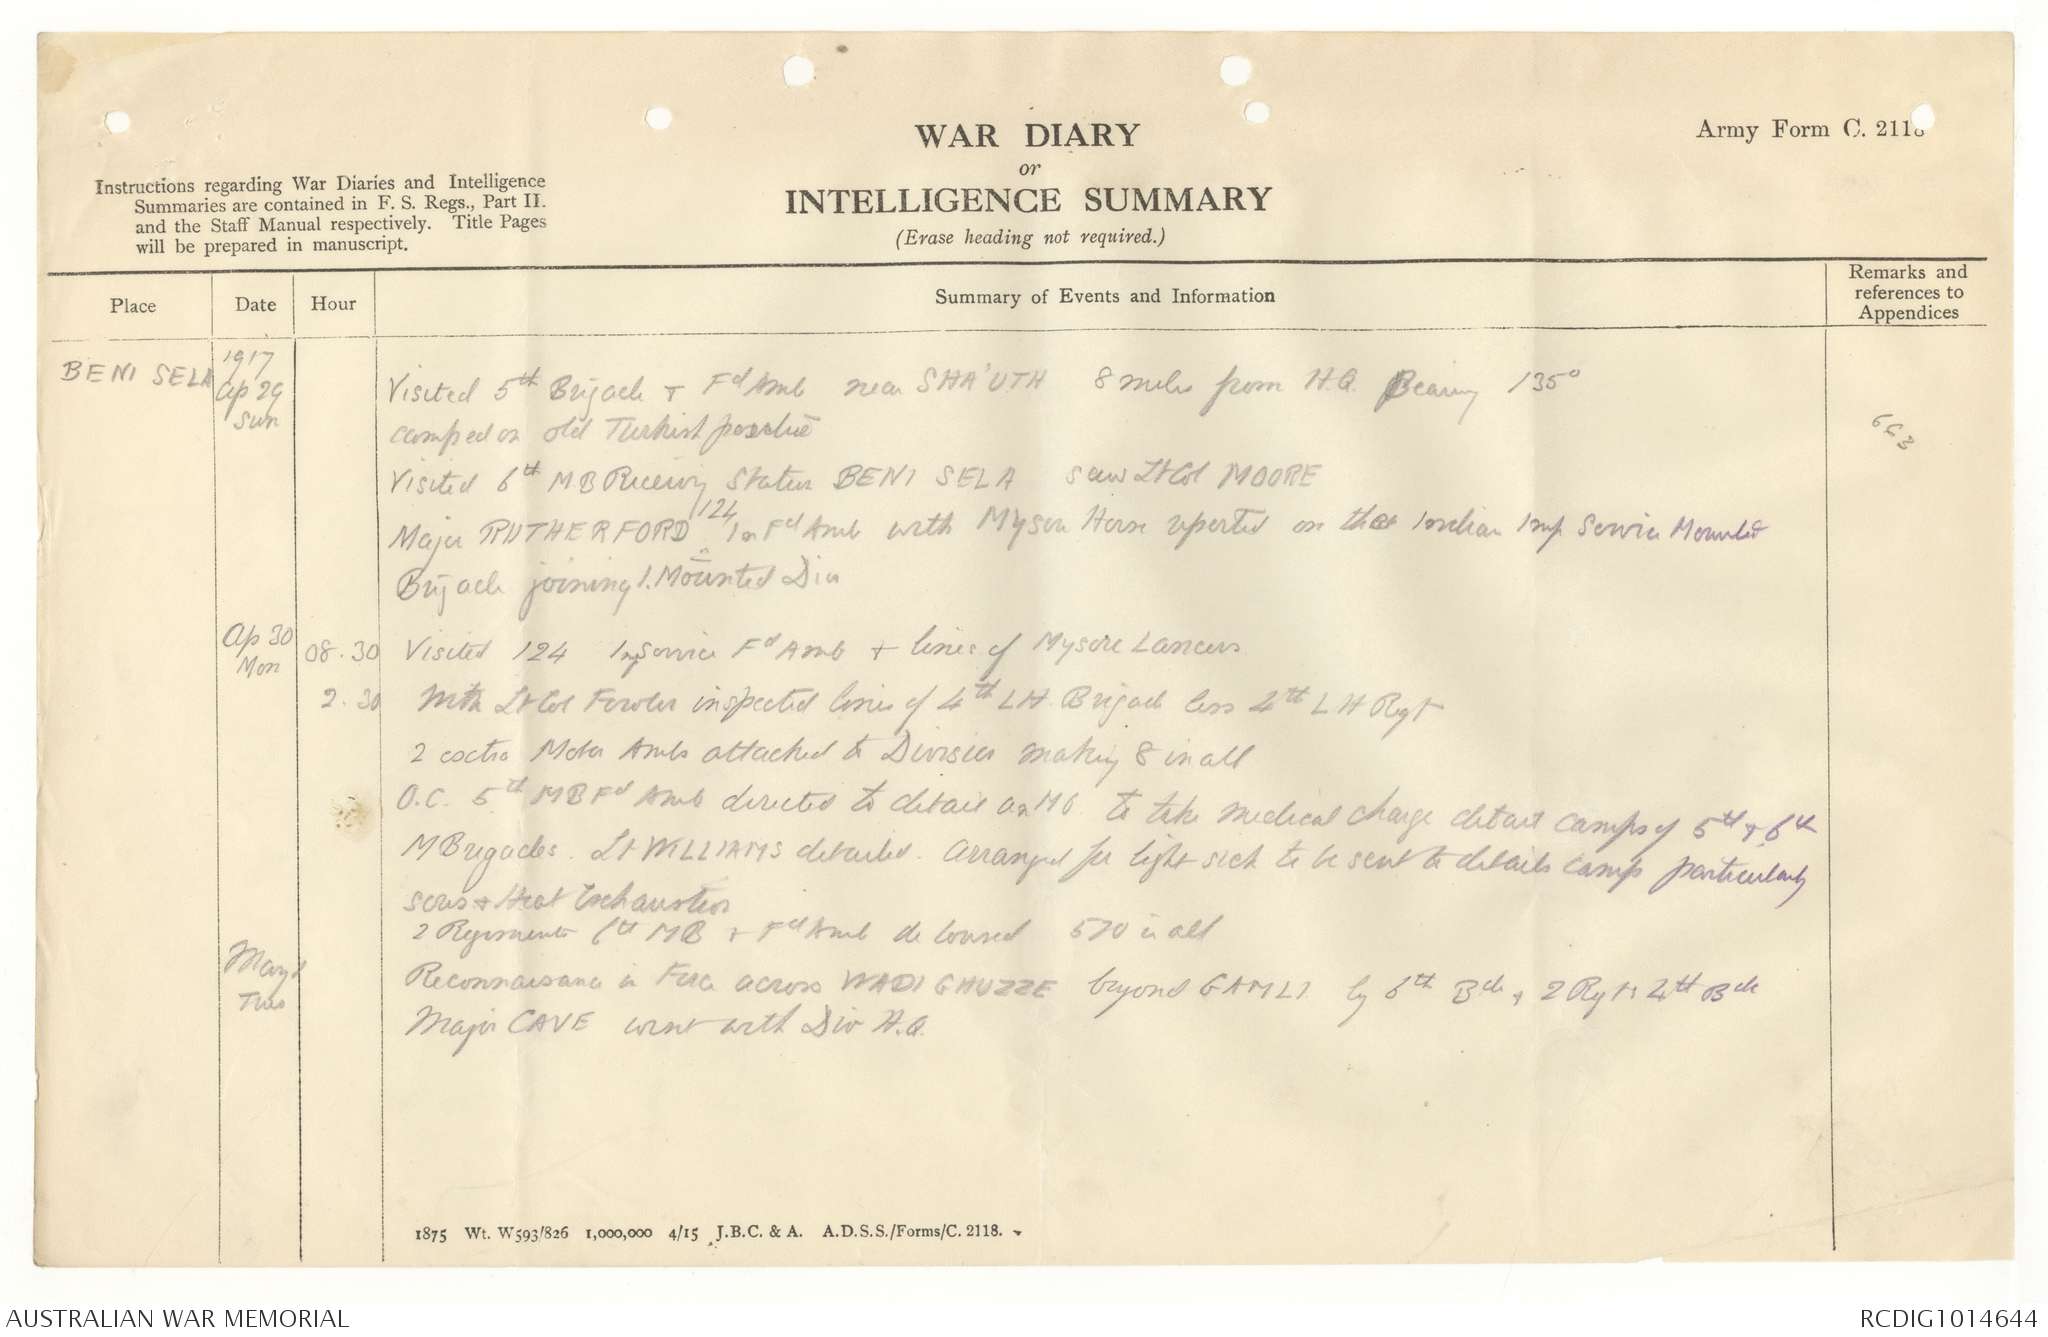 WAR DIARY
or
INTELLIGENCE SUMMARY
(Erase heading not required.)
Army Form C. 2118
Instructions regarding War Diaries and Intelligence
Summaries are contained in F. S. Regs., Part II.
and the Staff Manual respectively. Title Pages
will be prepared in manuscript.
Place
Date
Hour
Summary of Events and Information
Remarks and
references to
Appendices
BENI SELA
1917
Ap 29
Sun
Visited 5th Brigade + Fd Amb near SHA'UTH 8 miles from H.Q. Bearing 135°
camped on old Turkish position
Visited 6th M.B Receiving Station BENI SELA saw Lt Col MOORE
Major RUTHERFORD 124 In Fd Amb with Mysore Horse reported on that Indian Imp Service Mounted
Brigade joining 1. Mounted Div
663
Ap 30
Mon
08.30
Visited 124 Imp Service Fd Amb + lines of Mysore Lancers
2.30
With Lt Col Fowler inspected lines of 4th LH. Brigade less 4th L H Regt
2 extra Motor Ambs attached to Division making 8 in all
O.C. 5th MB Fd Amb directed to detail a MO. to take medical charge detail camps of 5th + 6th
M Brigades. Lt WILLIAMS detailed. Arranged for light sick to be sent to details camp particularly
sores + Heat Exhaustion
2 Regiments 6th MB + Fd Amb deloused 570 in all
May 1
Tues
Reconnaisance in Force across WADI GHUZZE beyond GAMLI by 6th Bde + 2 Regts 4th Bde
Major CAVE went with Div H.Q.
1875 Wt. W593/826 1,000,000 4/15 J.B.C. & A. A.D.S.S./Forms/C. 2118.
AUSTRALIAN WAR MEMORIAL
RCDIG1014644